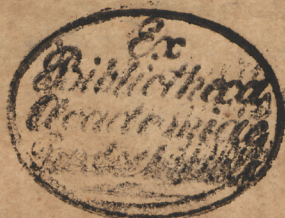 Ex
Bibliotheca
Academica